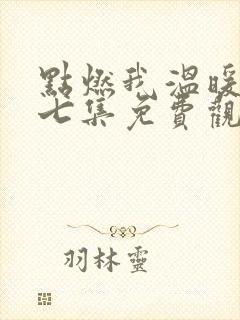 點燃我,溫暖
七集免費觀
羽林靈